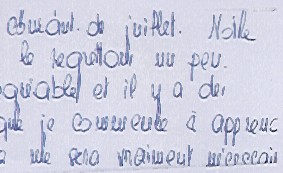 courant. de juillet. Noile
le regrettons un peu.
agréable et il y a des
que je commence à apprenc
a me sera vraiment nécessair